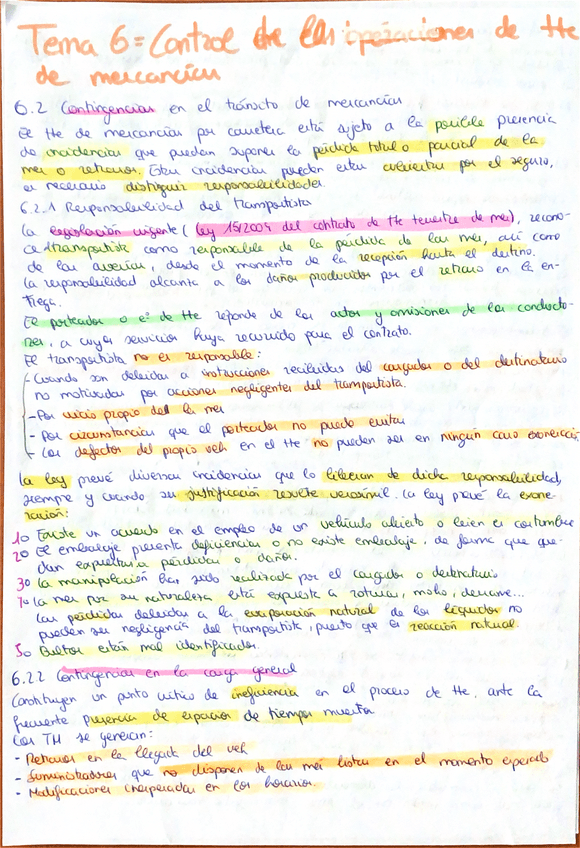 Tema 6 = Control de las operaciones de tte
de mercancías
6.2 Contingencias en el tránsito de mercancías
El tte de mercancías por carretera está sujeto a la posible presencia
de incidencias que puedan suponer la pérdida total o parcial de la
mer o retrasos. Estas incidencias pueden estar cubiertas por el seguro,
es necesario distinguir responsabilidades.
6.2.1 Responsabilidad del transportista
La legislación vigente (Ley 15/2009 del contrato de tte terrestre de mer), recono-
ce al transportista como responsable de la pérdida de las mer, así como
de las averías, desde el momento de la recepción hasta el destino.
La responsabilidad alcanza a los daños producidos por el retraso en la en-
trega.
El porteador o eª de tte responde de los actos y omisiones de los conducto-
res, a cuyos servicios haya recurrido para el contrato.
El transportista no es responsable:
- Cuando son debidas a instrucciones recibidas del cargador o del destinatario
no motivadas por acciones negligentes del transportista.
- Por vicio propio de la mer
- Por circunstancias que el porteador no puede evitar
- Los defectos del propio veh en el tte no pueden ser en ningún caso exoneración
La ley prevé diversas incidencias que lo liberan de dicha responsabilidad,
siempre y cuando su justificación resulte verosímil. La ley prevé la exone-
ración:
1o Existe un acuerdo en el empleo de un vehículo abierto o bien es costumbre
2o El embalaje presenta deficiencias o no existe embalaje, de forma que que-
dan expuestas a pérdidas o daños.
3o La manipulación han sido realizada por el cargador o destinatario
4o La mer por su naturaleza está expuesta a roturas, moho, derrame...
Las pérdidas debidas a la evaporación natural de los líquidos no
pueden ser negligencia del transportista, puesto que es reacción natural.
5o Bultos están mal identificados.
6.2.2 Contingencias en la carga general
Constituyen un punto crítico de ineficiencia en el proceso de tte, ante la
frecuente presencia de espacios de tiempos muertos
Los TM se generan:
- Retrasos en la llegada del veh
- Suministradores que no disponen de las mer listas en el momento esperado
- Modificaciones inesperadas en los horarios.